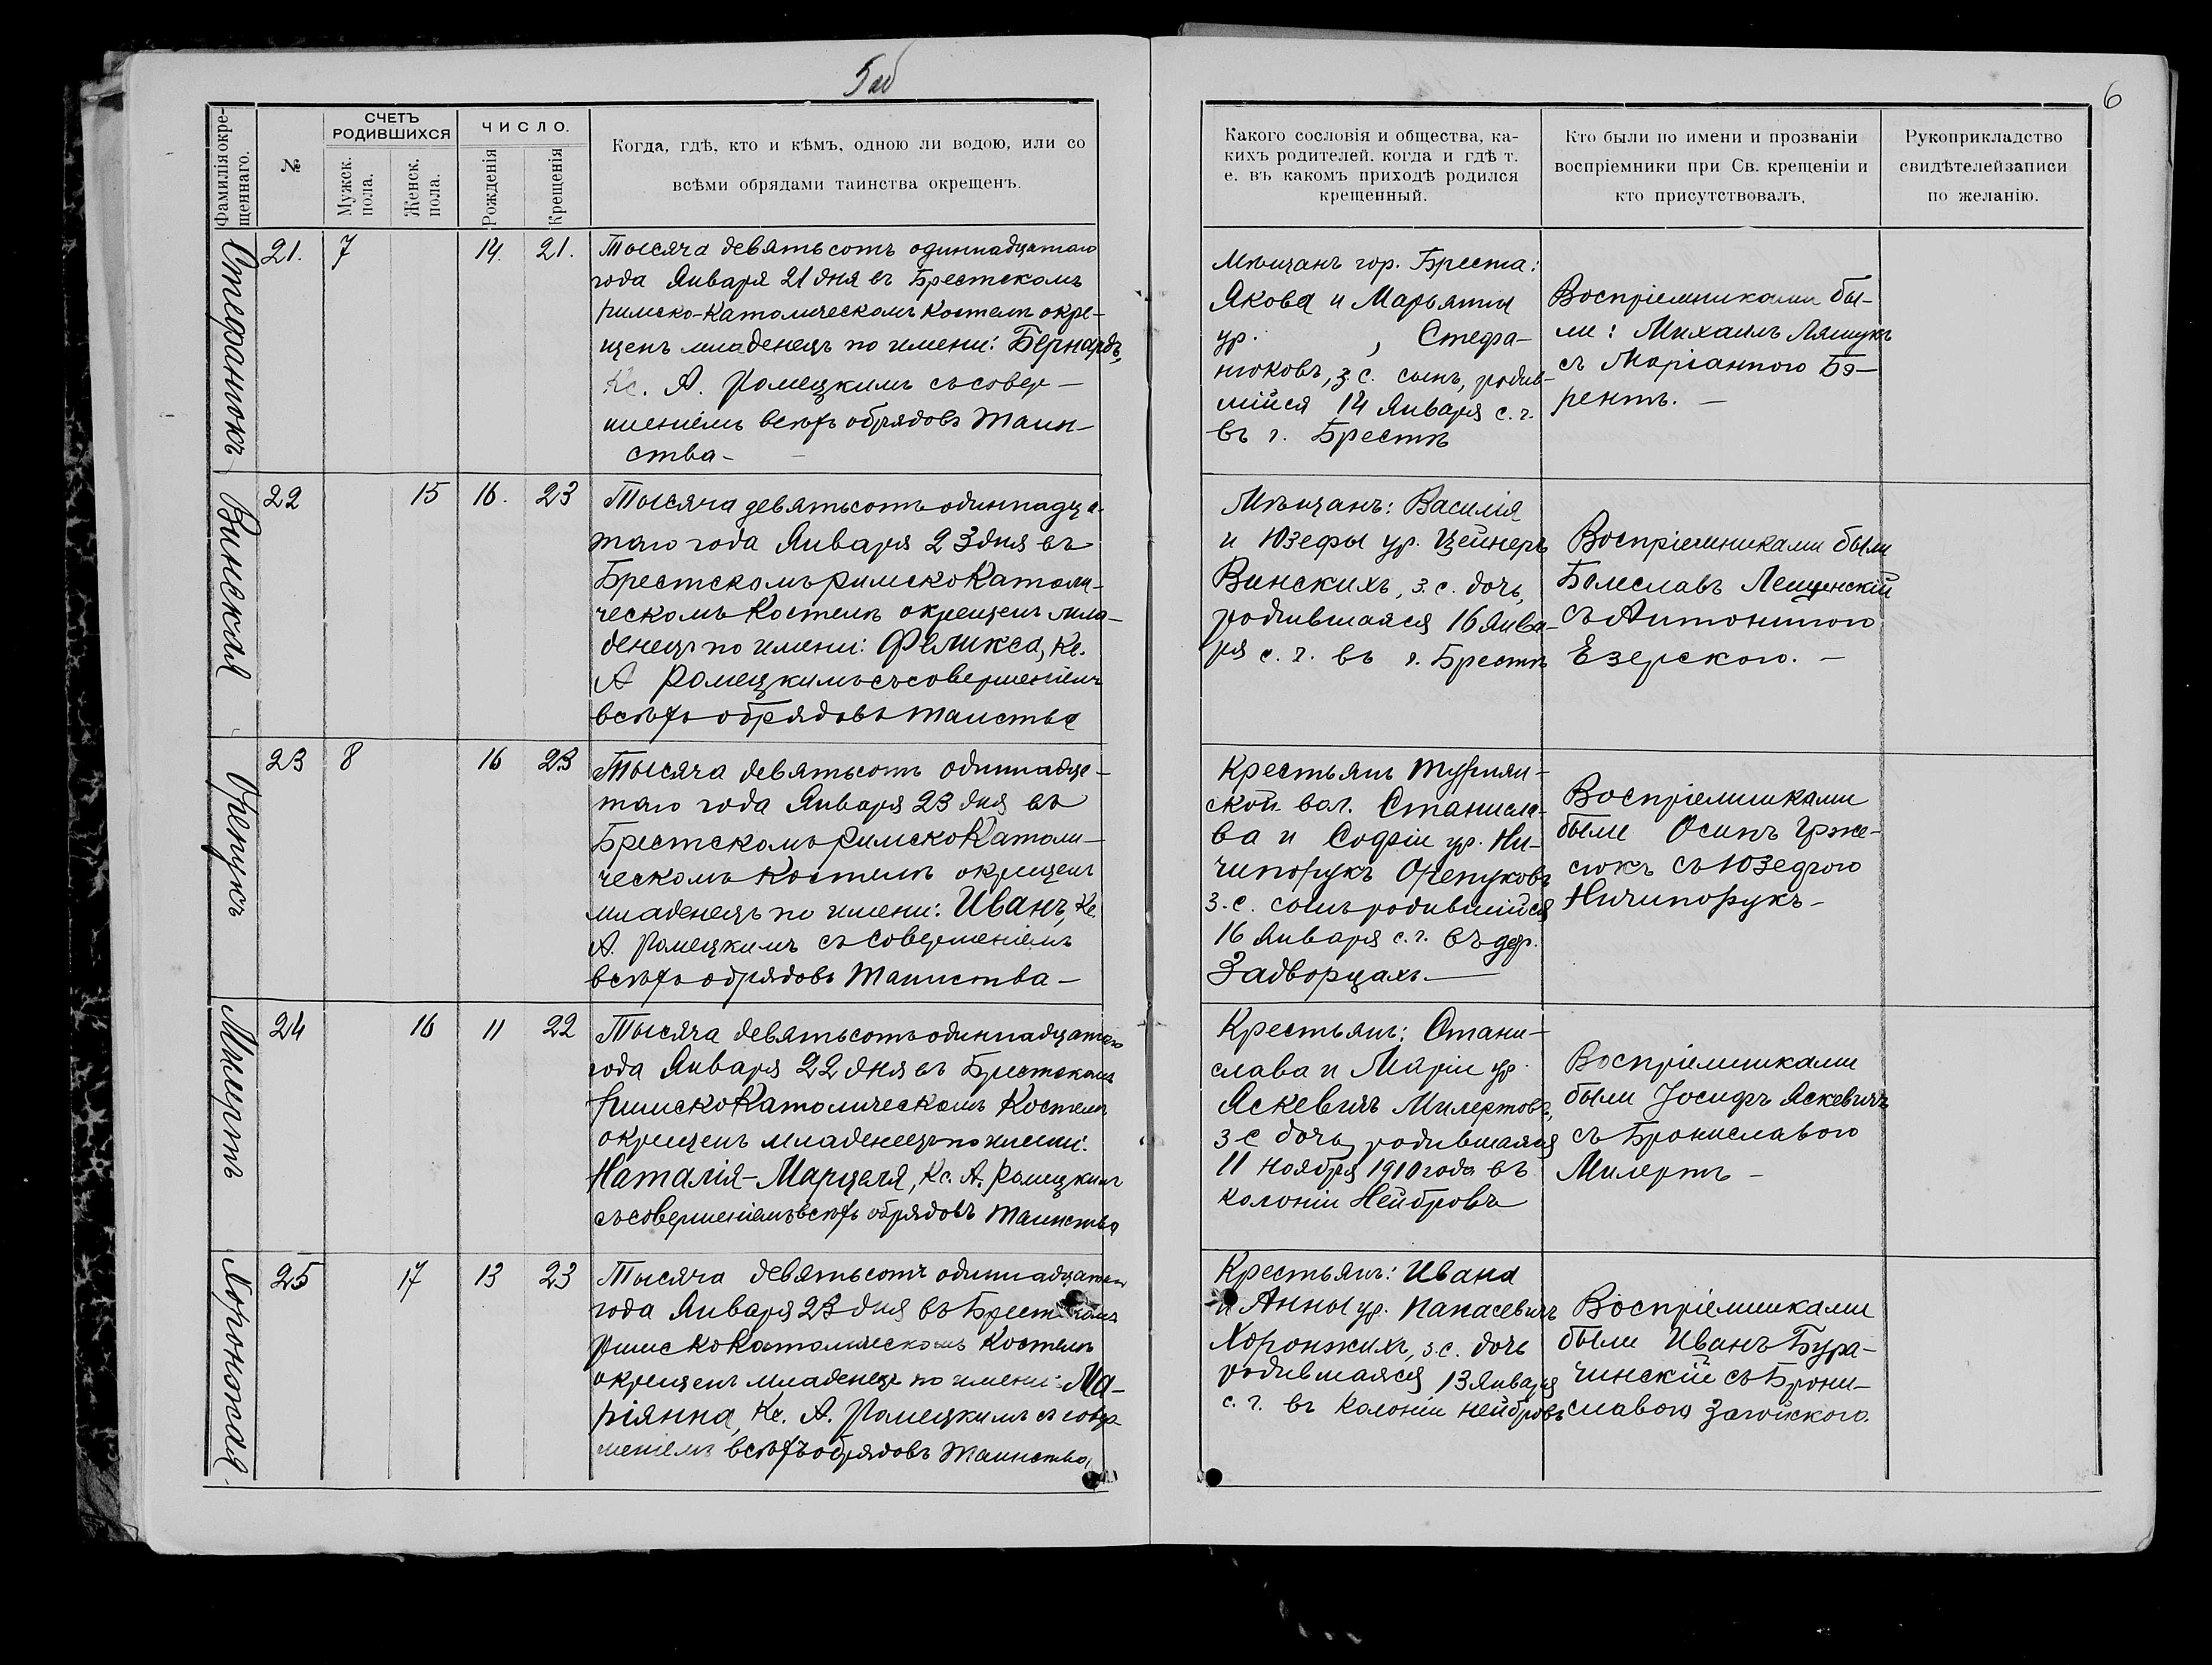 5об
6
Фамилія окре-
щеннаго.
№
СЧЕТЪ
РОДИВШИХСЯ
Мужск.
пола.
Женск.
пола.
ЧИСЛО.
Рожденія
Крещенія
Когда, гдѣ, кто и кѣмъ, одною ли водою, или со
всѣми обрядами таинства окрещенъ.
Какого сословія и общества, ка-
кихъ родителей, когда и гдѣ т.
е. въ какомъ приходѣ родился
крещенный.
Кто были по имени и прозваніи
воспріемники при Св. крещеніи и
кто присутствовалъ,
Рукоприкладство
свидѣтелей записи
по желанію.
Стефанюкъ
21. 7 14. 21.
Тысяча девятьсотъ одиннадцатаго
года Января 21 дня въ Брестскомъ
римско-Католическомъ Костелѣ окре-
щенъ младенецъ по имени: Бернардъ,
Кс. А. Ромецкимъ съ совер-
шеніемъ всѣхъ обрядовъ Таин-
ства-
Мѣщанъ гор. Бреста:
Якова и Марьянны
ур. , Стефа-
нюковъ, з. с. сынъ, родив-
шійся 14 Января с. г.
въ г. Брестѣ
Воспріемниками бы-
ли: Михаилъ Ляшукъ
съ Маріанною Бэ-
рентъ. -
Винская
22 15 16. 23
Тысяча девятьсотъ одиннадца-
таго года Января 23 дня въ
Брестскомъ римско Католи-
ческомъ Костелѣ окрещенъ мла-
денецъ по имени: Феликса, Кс.
А Ромецкимъ съ совершеніемъ
всѣхъ обрядовъ таиства
Мѣщанъ: Василія
и Юзефы ур. Цейнеръ
Винскихъ, з. с. дочь,
родившаяся 16 Янва-
ря с. г. въ г. Брестѣ
Воспріемниками были
Болеславъ Лещенскій
съ Антониною
Езерскою. -
Орепукъ
23 8 16 23
Тысяча девятьсотъ одиннадца-
таго года Января 23 дня въ
Брестскомъ римско Католи-
ческомъ Костелѣ окрещенъ
младенецъ по имени: Иванъ, Кс.
А. Ромецкимъ съ совершеніемъ
всѣхъ обрядовъ Таинства-
Крестьянъ Турнян-
ской вол. Станисла-
ва и Софіи ур. Ни-
чипорукъ Орепуковъ
з. с. сынъ родившійся
16 Января с. г. въ дер.
Задворцахъ.-
Воспріемниками
были Осипъ Грже-
сюкъ съ Юзефою
Ничипорукъ-
Милертъ
24 16 11 22
Тысяча девятьсотъ одиннадцатаго
года Января 22 дня въ Брестскомъ
римско Католическомъ Костелѣ
окрещенъ младенецъ по имени:
Наталія-Марцеля, Кс. А. Ромецкимъ
съ совершеніемъ всѣхъ обрядовъ таинства
Крестьянъ: Стани-
слава и Маріи ур.
Яскевичъ Милертовъ,
з с дочь, родившаяся
11 Ноября 1910 года въ
колоніи Нейбровъ
Воспріемниками
были Іосифъ Яскевичъ
съ Брониславою
Милертъ -
Хоронжая
25 17 13 23
Тысяча девятьсотъ одиннадцатаго
года Января 23 дня въ Брестскомъ
римско Католическомъ Костелѣ
окрещенъ младенецъ по имени: Ма-
ріянна, Кс. А. Ромецкимъ съ совер-
шеніемъ всѣхъ обрядовъ таинства,
Крестьянъ: Ивана
и Анны ур. Панасевичъ
Хоронжихъ, з. с. дочь
родившаяся 13 Января
с. г. въ колоніи Нейбровъ
Воспріемниками
были Иванъ Бура-
чинскій съ Брони-
славою Загойскою.